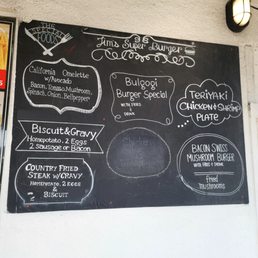 THE
SPECIAL
FOODS
Jim's Super Burger
California Omelette
w/Avocado
Bacon, Tomato, Mushroom,
Spinach, Onion, Bellpepper
Bulgogi
Burger Special
WITH FRIES
DRINK
TERIYAKI
CHICKEN & SHRIMP
PLATE
BISCUIT & GRAVY
HOMEPOTATO, 2 EGGS
2 SAUSAGE or BACON
BACON SWISS
MUSHROOM BURGER
WITH FRIES & DRINK
fried
mushrooms
COUNTRY FRIED
STEAK W/GRAVY
HOMEPOTATO, 2 EGGS
& BISCUIT